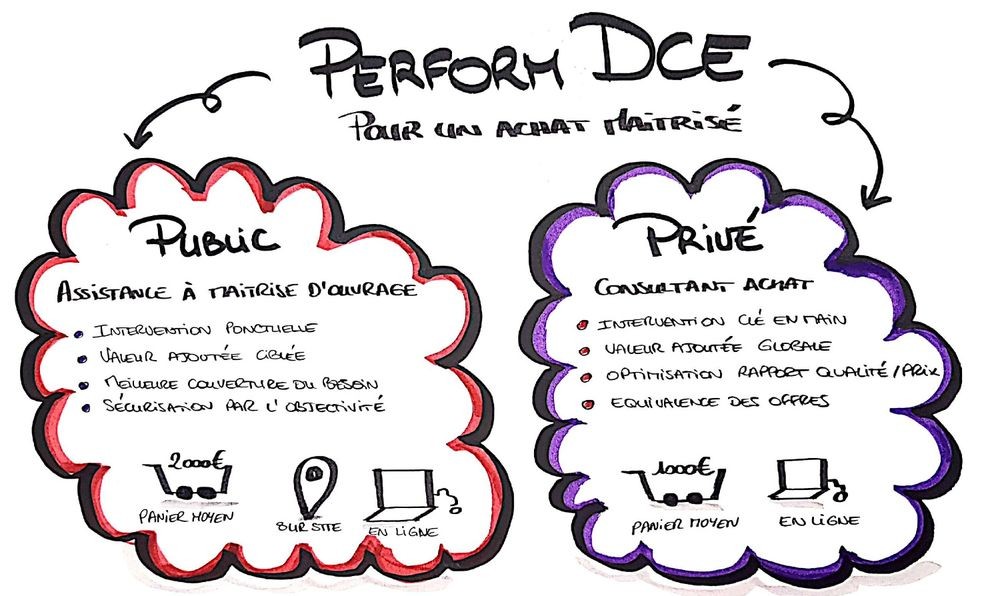 PERFORM DCE
POUR UN ACHAT MAÎTRISÉ
PUBLIC
ASSISTANCE À MAITRISE D'OUVRAGE
INTERVENTION PONCTUELLE
VALEUR AJOUTÉE CIBLÉE
MEILLEURE COUVERTURE DU BESOIN
SÉCURISATION PAR L'OBJECTIVITÉ
2000€
PANIER MOYEN
SUR SITE
EN LIGNE
PRIVÉ
CONSULTANT ACHAT
INTERVENTION CLÉ EN MAIN
VALEUR AJOUTÉE GLOBALE
OPTIMISATION RAPPORT QUALITÉ/PRIX
EQUIVALENCE DES OFFRES
1000€
PANIER MOYEN
EN LIGNE